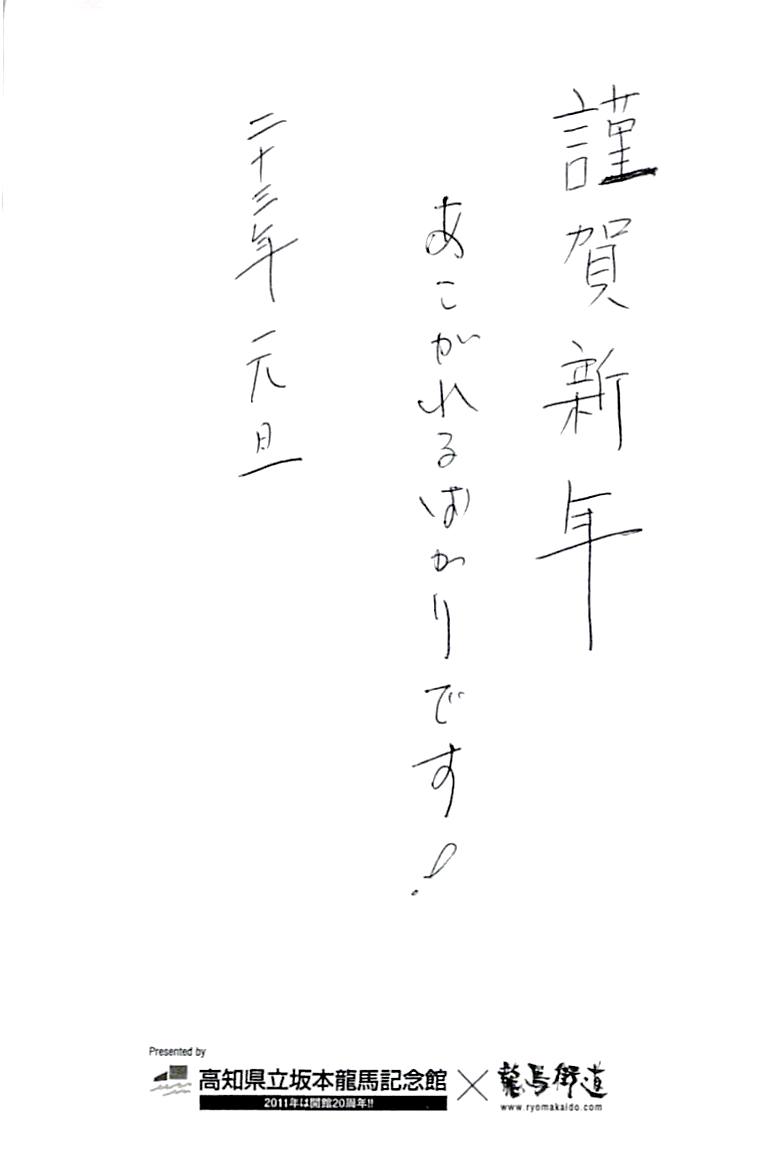 謹賀新年
あこがれるばかりです!
二十三年 元旦
Presented by
高知県立坂本龍馬記念館
2011年は開館20周年!!
×
龍馬街道
www.ryomakaido.com